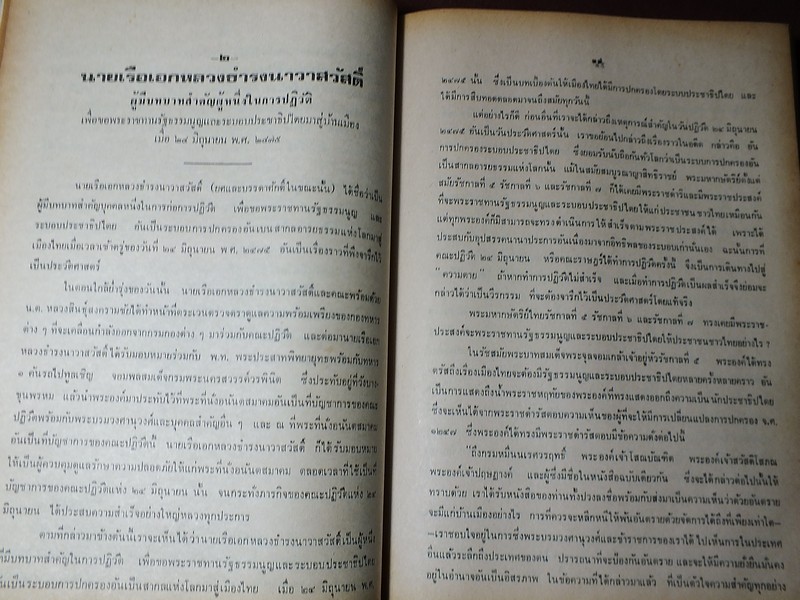 —๒—
นายเรือเอกหลวงธำรงนาวาสวัสดิ์
ผู้มีบทบาทสำคัญผู้หนึ่งในการปฏิวัติ
เพื่อขอพระราชทานรัฐธรรมนูญและระบอบประชาธิปไตยมาสู่บ้านเมือง
เมื่อ ๒๔ มิถุนายน พ.ศ. ๒๔๗๕
นายเรือเอกหลวงธำรงนาวาสวัสดิ์ (ยศและบรรดาศักดิ์ในขณะนั้น) ได้ชื่อว่าเป็น
ผู้มีบทบาทสำคัญบุคคลหนึ่งในการก่อการปฏิวัติ เพื่อขอพระราชทานรัฐธรรมนูญ และ
ระบอบประชาธิปไตย อันเป็นระบอบการปกครองอันเป็นสากลอารยธรรมแห่งโลกมาสู่
เมืองไทยเมื่อเวลาเช้าตรู่ของวันที่ ๒๔ มิถุนายน พ.ศ. ๒๔๗๕ อันเป็นเรื่องราวที่พึงจารึกไว้
เป็นประวัติศาสตร์
ในตอนใกล้ย่ำรุ่งของวันนั้น นายเรือเอกหลวงธำรงนาวาสวัสดิ์และคณะพร้อมด้วย
น.ต. หลวงสินธุ์สงครามชัยได้ทำหน้าที่ตระเวนตรวจตราดูแลความพร้อมเพรียงของกองทหาร
ต่าง ๆ ที่จะเคลื่อนกำลังออกจากกรมกองต่าง ๆ มาร่วมกับคณะปฏิวัติ และต่อมานายเรือเอก
หลวงธำรงนาวาสวัสดิ์ได้รับมอบหมายร่วมกับ พ.ท. พระประสาทพิทยายุทธพร้อมกับทหาร
๑ คันรถไปทูลเชิญ จอมพลสมเด็จกรมพระนครสวรรค์วรพินิต ซึ่งประทับอยู่ที่วังบาง-
ขุนพรหม แล้วนำพระองค์มาประทับไว้ที่พระที่นั่งอนันตสมาคมอันเป็นที่บัญชาการของคณะ
ปฏิวัติพร้อมกับพระบรมวงศานุวงศ์และบุคคลสำคัญอื่น ๆ และ ณ ที่พระที่นั่งอนันตสมาคม
อันเป็นที่บัญชาการของคณะปฏิวัตินี้ นายเรือเอกหลวงธำรงนาวาสวัสดิ์ ก็ได้รับมอบหมาย
ให้เป็นผู้ควบคุมดูแลรักษาความปลอดภัยให้แก่พระที่นั่งอนันตสมาคม ตลอดเวลาที่ใช้เป็นที่
บัญชาการของคณะปฏิวัติแห่ง ๒๔ มิถุนายน นั้น จนกระทั่งภารกิจของคณะปฏิวัติแห่ง ๒๔
มิถุนายน ได้ประสบความสำเร็จอย่างใหญ่หลวงทุกประการ
ตามที่กล่าวมาข้างต้นนี้เราจะเห็นได้ว่านายเรือเอกหลวงธำรงนาวาสวัสดิ์เป็นผู้หนึ่ง
ที่มีบทบาทสำคัญในการปฏิวัติ เพื่อขอพระราชทานรัฐธรรมนูญและระบอบประชาธิปไตย
อันเป็นระบอบการปกครองอันเป็นสากลแห่งโลกมาสู่เมืองไทย เมื่อ ๒๔ มิถุนายน พ.ศ.
๒๔๗๕ นั้น ซึ่งเป็นบทเบื้องต้นให้เมืองไทยได้มีการปกครองโดยระบบประชาธิปไตย และ
ได้มีการสืบทอดตลอดมาจนถึงสมัยทุกวันนี้
แต่อย่างไรก็ดี ก่อนอื่นที่เราจะได้กล่าวถึงเหตุการณ์สำคัญในวันปฏิวัติ ๒๔ มิถุนายน
๒๔๗๕ อันเป็นวันประวัติศาสตร์นั้น เราขอย้อนไปกล่าวถึงเรื่องราวในอดีต กล่าวคือ อัน
การปกครองระบอบประชาธิปไตย ซึ่งยอมรับนับถือกันทั่วโลกว่าเป็นระบบการปกครองอัน
เป็นสากลอารยธรรมแห่งโลกนั้น แม้ในสมัยสมบูรณาญาสิทธิราชย์ พระมหากษัตริย์ตั้งแต่
สมัยรัชกาลที่ ๕ รัชกาลที่ ๖ และรัชกาลที่ ๗ ก็ได้เคยมีพระราชดำริและมีพระราชประสงค์
ที่จะพระราชทานรัฐธรรมนูญและระบอบประชาธิปไตยให้แก่ประชาชนชาวไทยเหมือนกัน
แต่ทุกพระองค์ก็มิสามารถจะทรงดำเนินการให้สำเร็จตามพระราชประสงค์ได้ เพราะได้
ประสบกับอุปสรรคนานาประการอันเนื่องมาจากอิทธิพลของระบอบเก่านั่นเอง ฉะนั้นการที่
คณะปฏิวัติ ๒๔ มิถุนายน หรือคณะราษฎร์ได้ทำการปฏิวัติครั้งนี้ จึงเป็นการเดินทางไปสู่
“ความตาย” ถ้าหากทำการปฏิวัติไม่สำเร็จ และเมื่อทำการปฏิวัติเป็นผลสำเร็จจึงย่อมจะ
กล่าวได้ว่าเป็นวีรกรรม ที่จะต้องจารึกไว้เป็นประวัติศาสตร์โดยแท้จริง
พระมหากษัตริย์ไทยรัชกาลที่ ๕ รัชกาลที่ ๖ และรัชกาลที่ ๗ ทรงเคยมีพระราช-
ประสงค์จะพระราชทานรัฐธรรมนูญและระบอบประชาธิปไตยให้ประชาชนชาวไทยอย่างไร ?
ในรัชสมัยพระบาทสมเด็จพระจุลจอมเกล้าเจ้าอยู่หัวรัชกาลที่ ๕ พระองค์ได้ทรง
ตรัสถึงเรื่องเมืองไทยจะต้องมีรัฐธรรมนูญและระบอบประชาธิปไตยหลายครั้งหลายคราว อัน
เป็นการแสดงถึงน้ำพระราชหฤทัยของพระองค์ที่ทรงแสดงออกถึงความเป็นนักประชาธิปไตย
ซึ่งจะเห็นได้จากพระราชดำรัสตอบความเห็นของผู้ที่จะให้มีการเปลี่ยนแปลงการปกครอง จ.ศ.
๑๒๔๗ ซึ่งพระองค์ได้ทรงมีพระราชดำรัสตอบมีข้อความดังต่อไปนี้
“ถึงกรมหมื่นนเรศวรฤทธิ์ พระองค์เจ้าโสณบัณฑิต พระองค์เจ้าสวัสดิโสภณ
พระองค์เจ้าปฤษฎางค์ และผู้ซึ่งมีชื่อในหนังสือฉบับเดียวกัน ซึ่งจะได้กล่าวต่อไปนั้นให้
ทราบด้วย เราได้รับหนังสือของท่านทั้งปวงลงชื่อพร้อมกันส่งมาเป็นความเห็นว่าด้วยอันตราย
จะมีแก่บ้านเมืองอย่างไร การที่ควรจะหลีกหนีให้พ้นอันตรายด้วยจัดการได้ถึงที่เพียงเท่าใด-
—เราชอบใจอยู่ในการซึ่งพระบรมวงศานุวงศ์และข้าราชการของเราได้ไปเห็นการในประเทศ
อื่นแล้วระลึกถึงประเทศของตน ปรารถนาที่จะป้องกันอันตราย และจะให้มีความยั่งยืนมั่นคง
อยู่ในอำนาจอันเป็นอิสรภาพ ในข้อความที่ได้กล่าวมาแล้ว ที่เป็นตัวใจความสำคัญทุกอย่าง